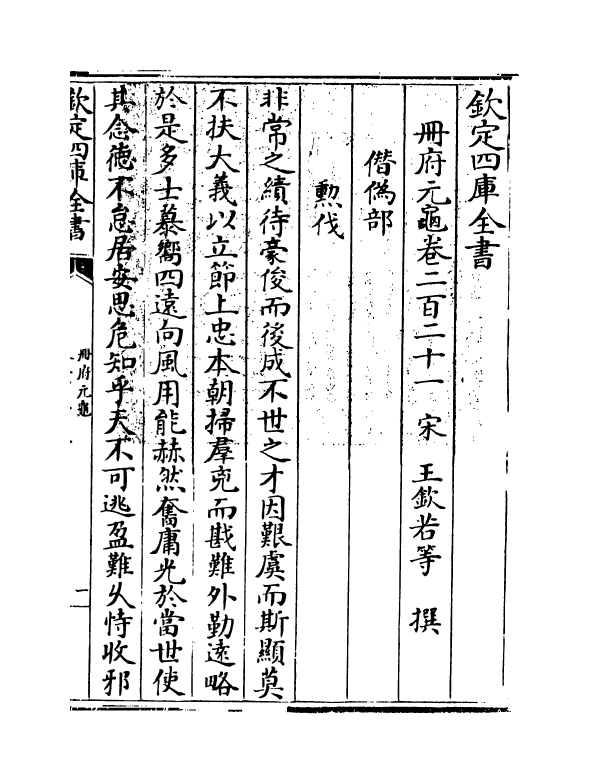 欽定四庫全書
冊府元龜卷二百二十一 宋 王欽若等 撰
僭偽部
勲伐
非常之績待豪俊而後成不世之才因艱虞而斯顯莫
不扶大義以立節上忠本朝掃羣兇而戡難外勤遠略
於是多士慕嚮四遠向風用能赫然奮庸光於當世使
其念徳不怠居安思危知乎天不可逃盈難乆恃收邪
欽定四庫全書
冊府元龜